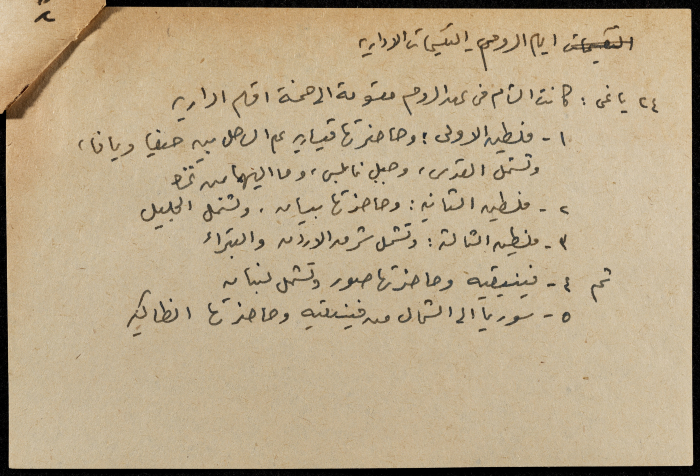 التقسيمات ايام الروم - التقسيمات الادارية
٢٤ ياغي : كانت الشام في عهد الروم مقسومة الى خمسة اقسام ادارية
١ - فلسطين الاولى : وحاضرتها قيسارية على الساحل بين حيفا ويافا ،
وتشمل القدس ، وجبل نابلس ، وما اليهما من
٢ - فلسطين الثانية : وحاضرتها بيسان ، وتشمل الجليل
٣ - فلسطين الثالثة : وتشمل شرق الاردن والبتراء
ثم ٤ - فينيقيه وحاضرتها صور وتشمل لبنان
٥ - سوريا الى الشمال من فينيقيه وحاضرتها انطاكية